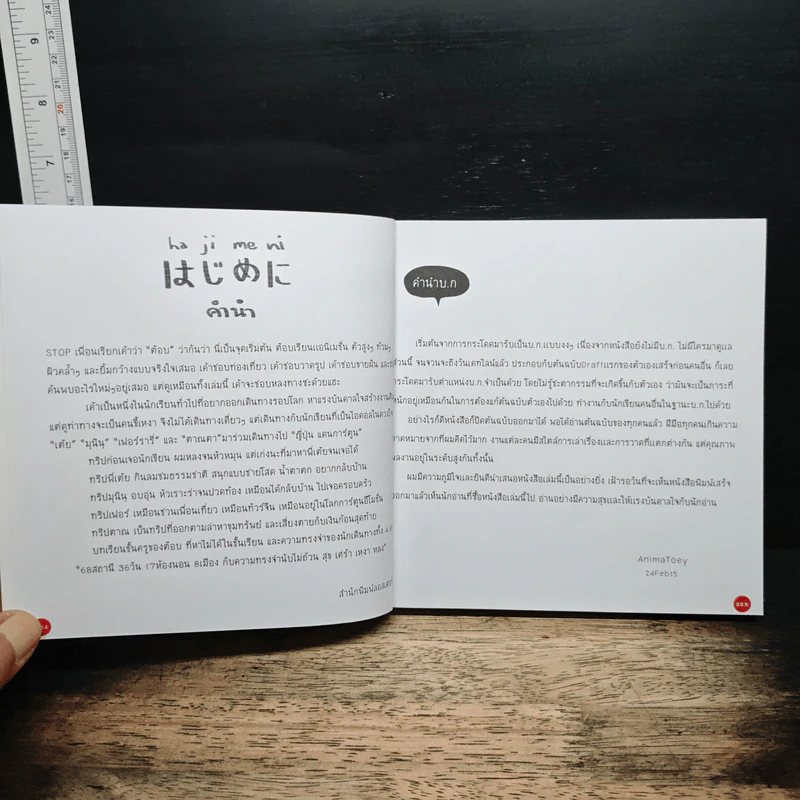 ha ji me ni
はじめに
คำนำ
STOP เพื่อนเรียกเค้าว่า “ต้อบ” ว่ากันว่า นี่เป็นจุดเริ่มต้น ต้อบเรียนแอนิเมชั่น ตัวสูงๆ ท้วมๆ
ผิวคล้ำๆ และยิ้มกว้างแบบจริงใจเสมอ เค้าชอบท่องเที่ยว เค้าชอบวาดรูป เค้าชอบขายฝัน และ
ค้นพบอะไรใหม่ๆอยู่เสมอ แต่ดูเหมือนทั้งเล่มนี้ เค้าจะชอบหลงทางซะด้วยแฮะ
เค้าเป็นหนึ่งในนักเรียนทั่วไปที่อยากออกเดินทางรอบโลก หาแรงบันดาลใจสร้างงาน
แต่ดูท่าทางจะเป็นคนขี้เหงา จึงไม่ได้เดินทางเดี่ยวๆ แต่เดินทางกับนักเรียนที่เป็นไอดอลในดวงใจ
“เต้ย” “มุนินฺ” “เฟอร์รารี่” และ “ตาณตา”มาร่วมเดินทางไป “ญี่ปุ่น แดนการ์ตูน”
ทริปก่อนเจอนักเรียน ผมหลงจนหัวหมุน แต่เก่งนะที่มาหาพี่เต้ยจนเจอได้
ทริปพี่เต้ย กินลมชมธรรมชาติ สนุกแบบชายโสด น้ำตาตก อยากกลับบ้าน
ทริปมุนินฺ อบอุ่น หัวเราะร่าจนปวดท้อง เหมือนได้กลับบ้าน ไปเจอครอบครัว
ทริปเฟอร์ เหมือนชวนเพื่อนเที่ยว เหมือนทัวร์จีน เหมือนอยู่ในโลกการ์ตูนอีโมชั่น
ทริปตาณ เป็นทริปที่ออกตามล่าหาขุมทรัพย์ และเสี่ยงตายกับเงินก้อนสุดท้าย
บทเรียนชั้นครูของต้อบ ที่หาไม่ได้ในชั้นเรียน และความทรงจำของนักเดินทางทั้ง
“68สถานี 36วัน 17ห้องนอน 8เมือง กับความทรงจำนับไม่ถ้วน สุข เศร้า เหงา หลง”
สำนักพิมพ์
คำนำบ.ก
เริ่มต้นจากการกระโดดมารับเป็นบ.ก.แบบงงๆ เนื่องจากหนังสือยังไม่มีบ.ก. ไม่มีใครมาดูแล
ส่วนนี้ จนจวนจะถึงวันเดทไลน์แล้ว ประกอบกับต้นฉบับDraftแรกของตัวเองเสร็จก่อนคนอื่น ก็เลย
กระโดดมารับตำแหน่งบ.ก.จำเป็นด้วย โดยไม่รู้ชะตากรรมที่จะเกิดขึ้นกับตัวเอง ว่ามันจะเป็นภาระที่
หนักอยู่เหมือนกันในการต้องแก้ต้นฉบับตัวเองไปด้วย ทำงานกับนักเขียนคนอื่นในฐานะบ.ก.ไปด้วย
อย่างไรก็ดีหนังสือก็ปิดต้นฉบับออกมาได้ พอได้อ่านต้นฉบับของทุกคนแล้ว ฝีมือทุกคนเกินความ
คาดหมายจากที่ผมคิดไว้มาก งานแต่ละคนมีสไตล์การเล่าเรื่องและการวาดที่แตกต่างกัน แต่คุณภาพ
ผลงานอยู่ในระดับสูงกันทั้งนั้น
ผมมีความภูมิใจและยินดีนำเสนอหนังสือเล่มนี้เป็นอย่างยิ่ง เฝ้ารอวันที่จะเห็นหนังสือพิมพ์เสร็จ
ออกมาแล้วเห็นนักอ่านที่ซื้อหนังสือเล่มนี้ไป อ่านอย่างมีความสุขและให้แรงบันดาลใจกับนักอ่าน
AnimaToey
24Feb15